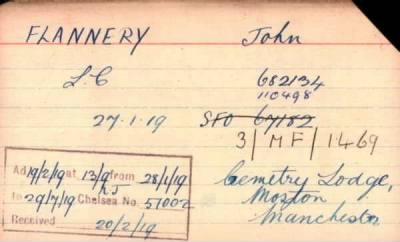 FLANNERY John
L.C 682134
110498
27.1.19 SFO 67182
3/MF/1469
Ad 19/2/19 at 13/9 from 28/1/19
to 29/7/19 Chelsea No. 57002
Received 20/2/19
Cemetry Lodge,
Moston
Manchester